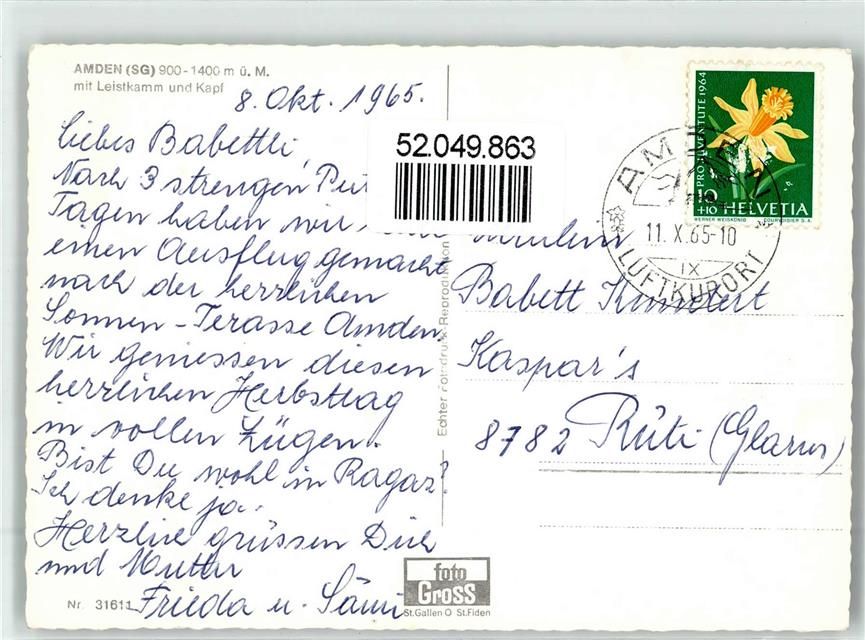 AMDEN (SG) 900-1400 m ü. M.
mit Leistkamm und Kapf
8. Okt. 1965.
Liebes Babettli,
Nach 3 strengen
Tagen haben wir
einen Ausflug gemacht
nach der herrlichen
Sonnen-Terasse Amden.
Wir geniessen diesen
herrlichen Herbsttag
in vollen Zügen.
Bist Du wohl in Ragaz?
Ich denke ja.
Herzlich grüssen Dich
und Mutter
Frieda u. Sämi
Nr. 31611
52.049.863
Echter Fotodruck-Reproduktion
foto
Gross
St.Gallen O St.Fiden
PRO JUVENTUTE 1964
10
+10 HELVETIA
WERNER WEISKÖNIG COURVOISIER S.A.
AMDEN
11. X. 65-10
IX
LUFTKURORT
Fräulein
Babett Kundert
Kaspar's
8782 Rüti (Glarus)